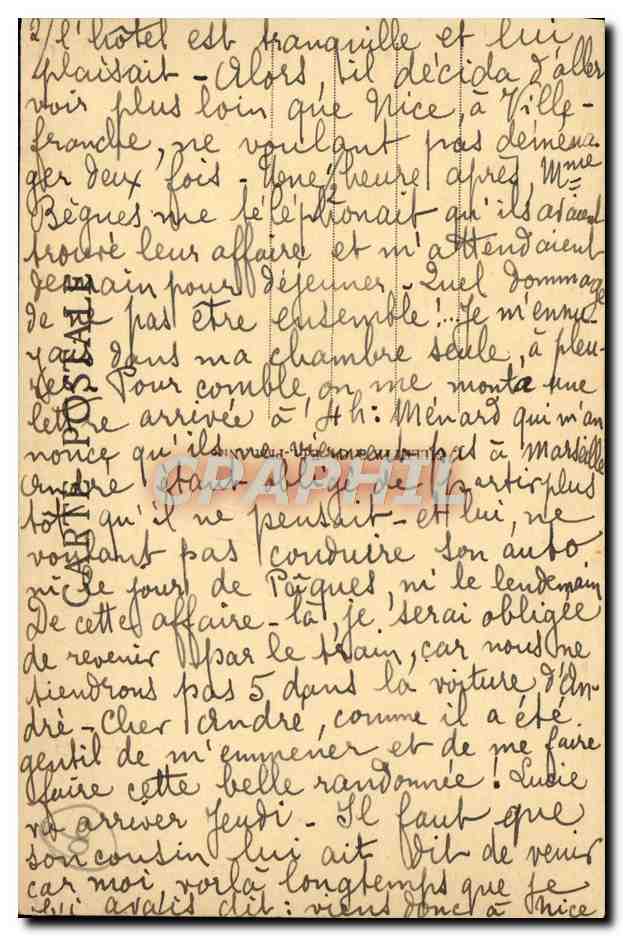 2/ l'hôtel est tranquille et lui
plaisait - Alors il décida d'aller
voir plus loin que Nice, à Ville-
franche, ne voulant pas déména-
ger deux fois - Une 1/2 heure après, Mme
Bègues me téléphonait qu'ils avaient
trouvé leur affaire et m'attendaient
demain pour déjeuner - Quel dommage
de ne pas être ensemble !... Je m'ennu-
yais dans ma chambre seule, à pleu-
rer. Pour comble on me monta une
lettre arrivée à 4h : Ménard qui m'an
nonce qu'ils ne viennent pas à Marseille
André étant obligé de partir plus
tôt qu'il ne pensait - et lui, ne
voulant pas conduire son auto
ni le jour de Pâques, ni le lendemain
De cette affaire-là, je serai obligée
de revenir par le train, car nous ne
tiendrons pas 5 dans la voiture d'An-
dré - Cher André, comme il a été
gentil de m'emmener et de me faire
faire cette belle randonnée ! Lucie
va arriver Jeudi - Il faut que
son cousin lui ait dit de venir
car moi, voilà longtemps que je
lui avais dit : viens donc à Nice
CARTE POSTALE
CPAPHIL